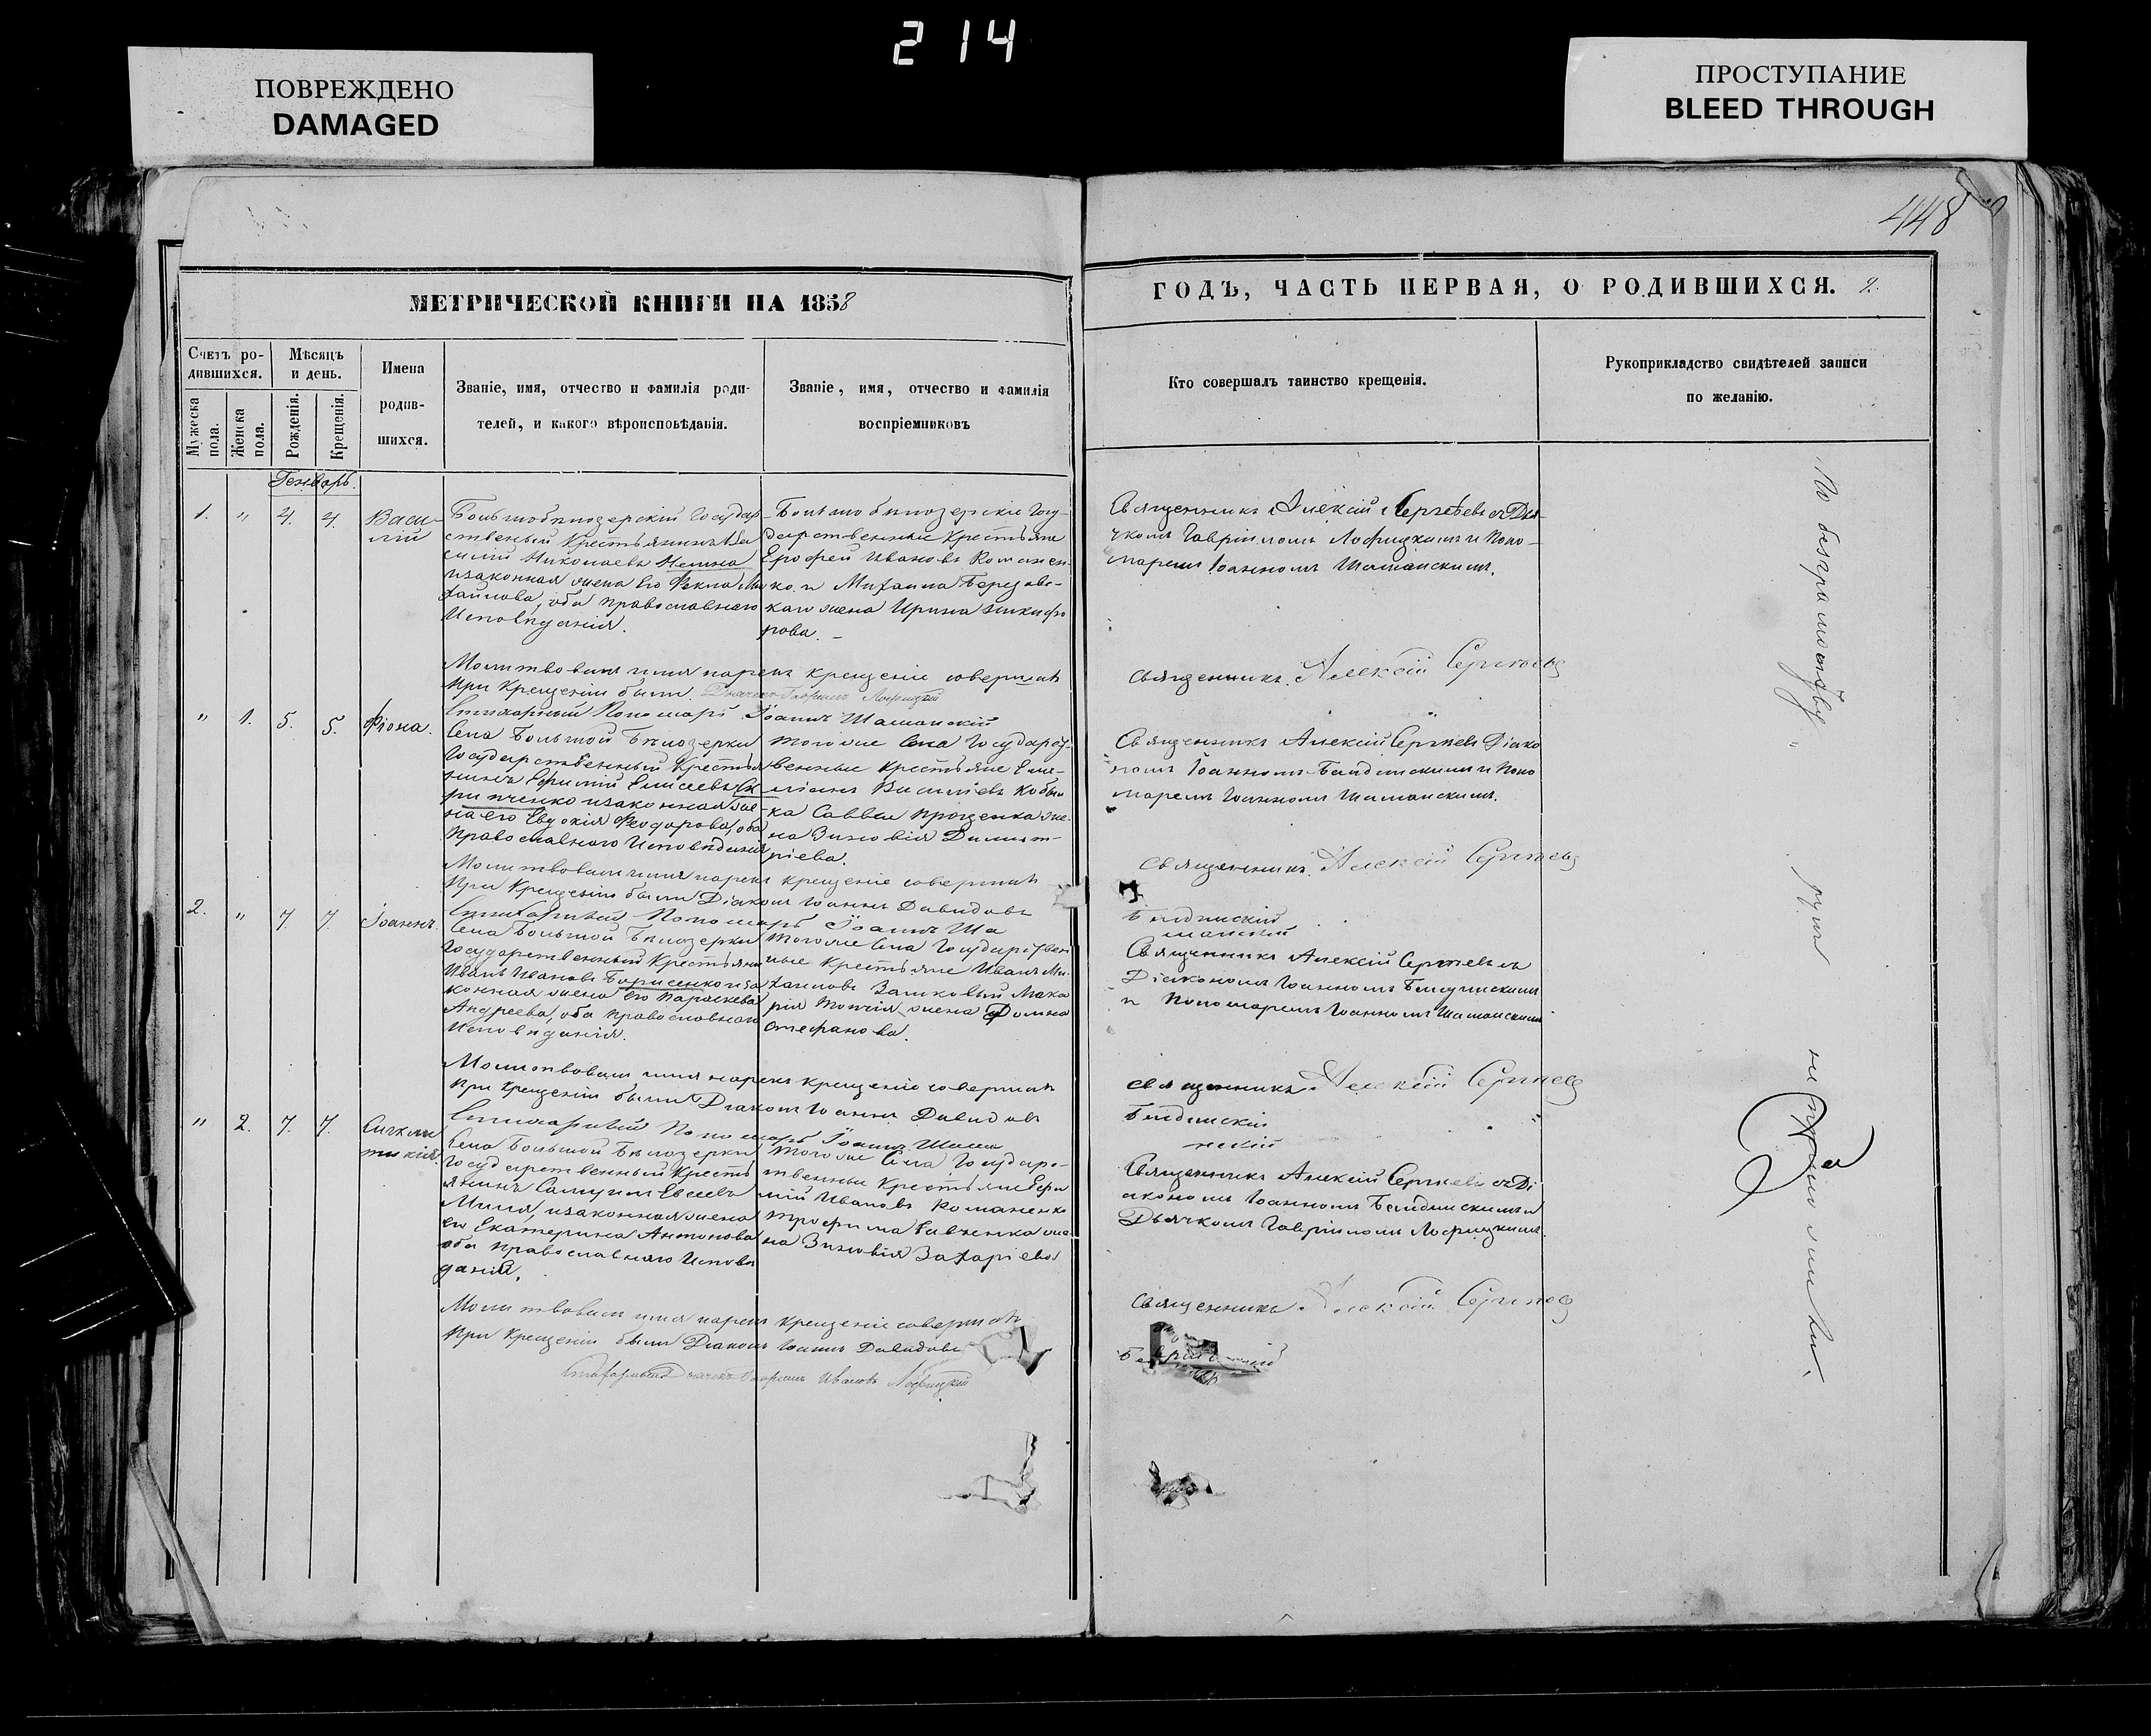 214
ПОВРЕЖДЕНО
DAMAGED
ПРОСТУПАНИЕ
BLEED THROUGH
448
МЕТРИЧЕСКОЙ КНИГИ НА 1858
ГОДЪ, ЧАСТЬ ПЕРВАЯ, О РОДИВШИХСЯ. 2.
Счетъ ро-
дившихся.
Мѣсяцъ
и день.
Мужеска
пола.
Женска
пола.
Рожденія.
Крещенія.
Имена
родив-
шихся.
Званіе, имя, отчество и фамилія роди-
телей, и какого вѣроисповѣданія.
Званіе, имя, отчество и фамилія
воспріемниковъ
Кто совершалъ таинство крещенія.
Рукоприкладство свидѣтелей записи
по желанію.
Генварь.
1. " 4. 4. Васи-
лій
Большобѣлозерскій государ
ственный крестьянинъ Ва
силій Николаевъ
и законная жена его Текла Ми
хайлова, оба православнаго
Исповѣданія.
Большобѣлозерскіе госу-
дарственные крестьяне
Ерофей Ивановъ Романен-
ко и Михаила Березовс-
каго жена Ирина Никифо
рова. -
Священникъ Алексій Сергѣевъ съ Дья-
чкомъ Гавріиломъ Лофицкимъ и Поно-
маремъ Іоанномъ Шаманскимъ.
Молитвовалъ имя нарекъ крещеніе совершилъ
священникъ Алексій Сергѣевъ
При крещеніи были Дьячекъ Гавріилъ Лофицкій
Стихарный Пономарь Іоаннъ Шаманскій
" 1. 5. 5. Фіона.
Села Большой Бѣлозерки
Государственный крестья
нинъ Ефимій Елисеевъ Ск
рипченко и законная же-
на его Евдокія Феодорова, оба
православнаго Исповѣданія
того же Села государст-
венные крестьяне Еме-
ліанъ Василіевъ Кобы
ка Саввы Проценка же-
на Зиновія Димит-
ріева.
Священникъ Алексій Сергѣевъ Діако
номъ Іоанномъ и Поно
маремъ Іоанномъ Шаманскимъ.
Молитвовалъ имя нарекъ крещеніе совершилъ
священникъ Алексій Сергѣевъ
При крещеніи были Діаконъ Іоаннъ Давидовъ
Стихарный Пономарь Іоаннъ Ша
манскій
2. " 7. 7. Іоаннъ.
Села Большой Бѣлозерки
Государственный крестьянин
Иванъ Ивановъ Борисенко и за
конная жена его Параскева
Андреева, оба православнаго
Исповѣданія.
того же Села государствен
ные крестьяне Иванъ Ми-
хаиловъ Мака
рія жена Домна
Стефанова.
Священникъ Алексій Сергѣевъ съ
Діакономъ Іоанномъ
и Пономаремъ Іоанномъ Шаманскимъ
Молитвовалъ имя нарекъ крещеніе совершилъ
священникъ Алексій Сергѣевъ
При крещеніи были Діаконъ Іоаннъ Давидовъ
Стихарный Пономарь Іоаннъ Шама
нскій
" 2. 7. 7. Сигкли
тикія.
Села Большой Бѣлозерки
Государственный кресть
янинъ Самуилъ Евсеевъ
и законная жена
его Екатерина Антонова
оба православнаго Исповѣ
данія.
того же Села государс-
твенные крестьяне
Ивановъ Романенко
Трофима же-
на Зиновія Захаріева
Священникъ Алексій Сергѣевъ съ Ді
акономъ Іоанномъ и
Дьячкомъ Гавріиломъ Лофицкимъ.
Молитвовалъ имя нарекъ крещеніе совершилъ
священникъ Алексій Сергѣевъ
При крещеніи были Діаконъ Іоаннъ Давидовъ
Стихарный Дьячекъ Гавріилъ Ивановъ Лофицкій
По безграмотству
рукъ
не приложили.